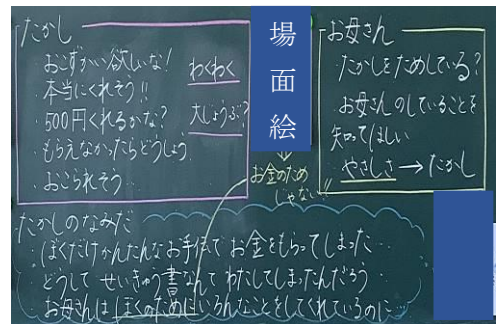 たかし
おこずかい欲しいな!
本当にくれそう!!
500円くれるかな?
もらえなかったらどうしよう
おこられそう
わくわく
大じょうぶ?
場面絵
お母さん
たかしをためしている?
お母さんのしていることを
知ってほしい
やさしさ→たかし
お金のため
じゃない!!
たかしのなみだ
・ぼくだけかんたんなお手伝でお金をもらってしまった…
・どうしてせいきゅう書なんてわたしてしまったんだろう
・お母さんはぼくのためにいろんなことをしてくれているのに…